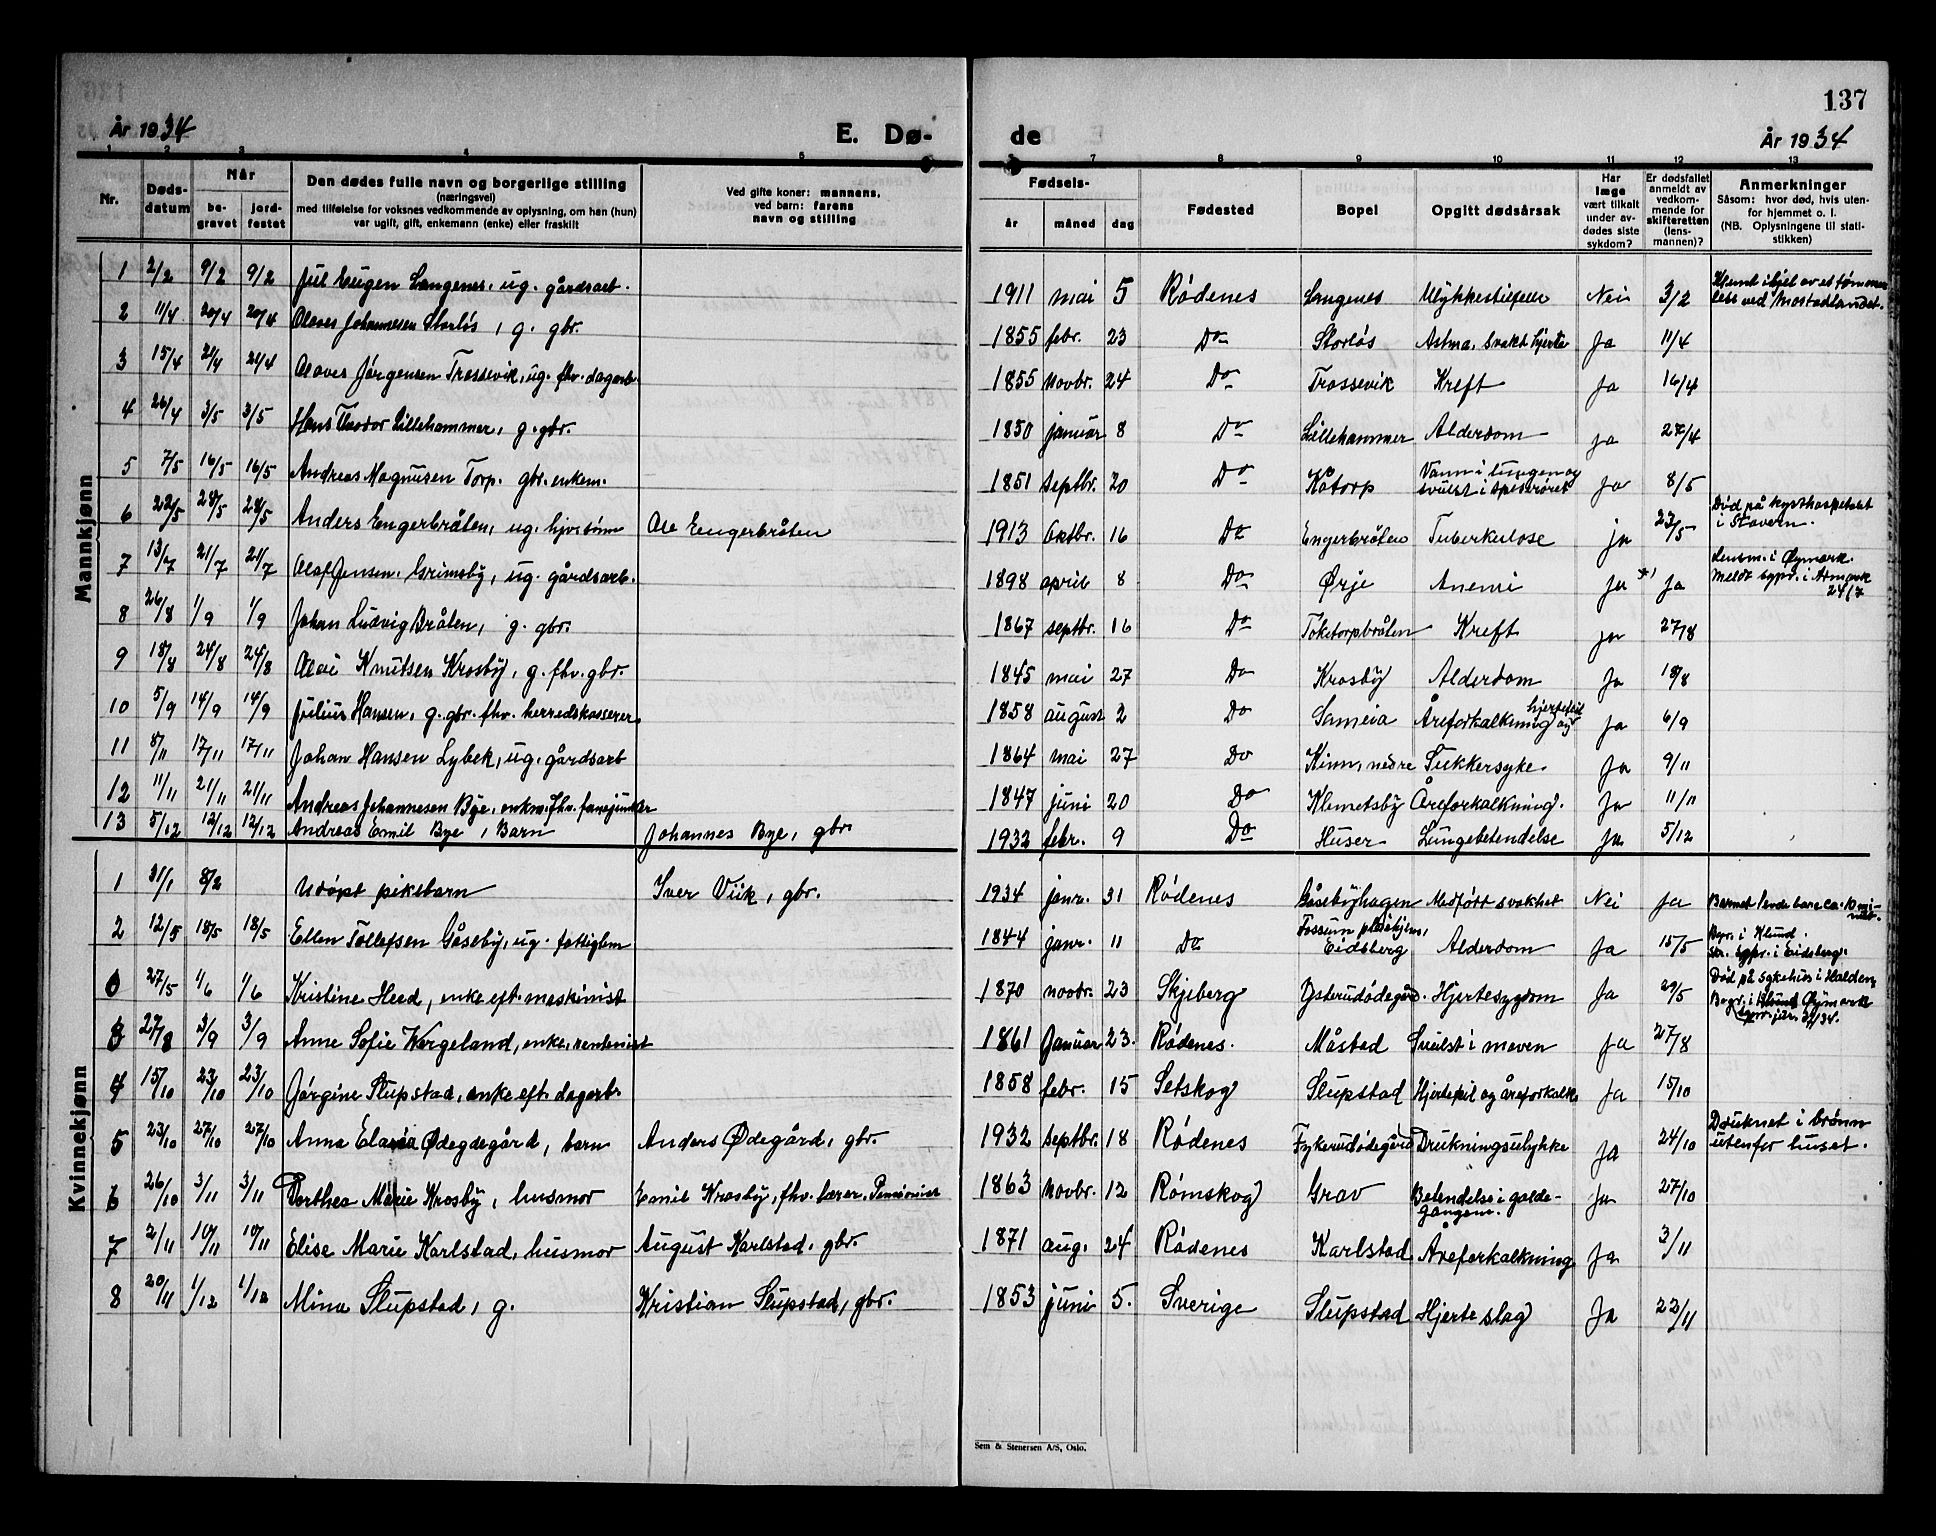 137
År 1934
E. Dø-
de
År 1934
1 2 3 4 5 7 8 9 10 11 12 13
Nr.
Døds-
datum
Når
be-
gravet
jord-
festet
Den dødes fulle navn og borgerlige stilling
(næringsvei)
med tilføielse for voksnes vedkommende av oplysning, om han (hun)
var ugift, gift, enkemann (enke) eller fraskilt
Ved gifte koner: mannens,
ved barn: farens
navn og stilling
Fødsels-
år
måned
dag
Fødested
Bopel
Opgitt dødsårsak
Har
læge
vært tilkalt
under av-
dødes siste
sykdom?
Er dødsfallet
anmeldt av
vedkom-
mende for
skifteretten
(lens-
mannen)?
Anmerkninger
Såsom: hvor død, hvis uten-
for hjemmet o. l.
(NB. Oplysningene til stati-
stikken)
Mannkjønn
1 2/2 9/2 9/2 Jul Eugen Langenes, ug. gårdsarb. 1911 mai 5 Rödenes Langenes Ulykkestilfelle Nei 3/2 Klemt ihjel av et tømmer
lass ved Mostadlandet.
2 11/4 20/4 20/4 Olaves Johannesen Storlös, g. gbr. 1855 febr. 23 Do Storlös Astma, svakt hjerte Ja 11/4
3 15/4 21/4 21/4 Olaves Jørgensen Trossevik, ug. fhv. dagarb. 1855 novbr. 24 Do Trossevik Kreft Ja 16/4
4 26/4 3/5 3/5 Hans Teodor Lillehammer, g. gbr. 1850 januar 8 Do Lillehammer Alderdom ja 27/4
5 7/5 16/5 16/5 Andreas Magnusen Torp. gbr. enkem. 1851 septbr. 20 Do Kåtorp Vann i lungen og
svulst i spiserøret ja 8/5
6 22/5 28/5 28/5 Anders Engerbråten, ug. hjv. sønn Ole Engerbråten 1913 Oktbr. 16 Do Engerbråten Tuberkulose ja 23/5 Død på kysthospitalet
i Stavern.
7 13/7 21/7 21/7 Olaf Jensen Grimsby, ug. gårdsarb. 1898 april 8 Do Ørje Anemi ja *) ja Lensm. i Øymark.
Meldt sgpr. i Aremark
24/7
8 26/8 1/9 1/9 Johan Ludvig Bråten, g. gbr. 1867 septbr. 16 Do Toketorpbråten Kreft ja 27/8
9 18/8 24/8 24/8 Olai Knutsen Krosby, g. fhv. gbr. 1845 mai 27 Do Krosby Alderdom Ja 18/8
10 5/9 14/9 14/9 Julius Hansen, g. gbr. fhv. herredskasserer 1858 august 2 Do Sameia Åreforkalkning og hjertefeil ja 6/9
11 8/11 17/11 17/11 Johan Hansen Lybek, ug. gårdsarb 1864 mai 27 Do Kinn, nedre Sukkersyke. Ja 9/11
12 11/11 21/11 21/11 Andreas Johannesen Bye, enkm. fhv. fanejunker 1847 juni 20 Do Klemetsby Åreforkalkning. Ja 11/11
13 5/12 12/12 12/12 Andreas Emil Bye, Barn Johannes Bye, gbr. 1932 febr. 9 Do Huser Lungebetendelse ja 5/12
Kvinnekjønn
1 31/1 8/2 Udøpt pikebarn Iver Viik, gbr. 1934 janr. 31 Rödenes Gåsebyhagen Medfött svakhet Nei ja Barnet levde bare ca. 10 mi-
nut.
2 12/5 18/5 18/5 Ellen Tollefsen Gåseby, ug. fattiglem 1844 janr. 11 Do Fossum pleiehjem,
Eidsberg Alderdom Ja 15/5 Begr. i Klund.
sgpr. i Eidsberg.
27/5 1/6 1/6 Kristine Heed, enke eft. maskinist 1870 novbr. 23 Skjeberg Østerudödegård. Hjertesygdom Ja 29/5 Död på sykehus i Halden
Begr. i Klund Øymark
3 27/8 3/9 3/9 Anne Sofie Wergeland, enke, rentenist 1861 Januar 23. Rödenes. Måstad Svulst i maven Ja 27/8
4 15/10 23/10 23/10 Jørgine Slupstad, enke eft. dagarb. 1858 febr. 15 Setskog Slupstad Hjertefeil og åreforkalk. Ja 15/10
5 23/10 27/10 27/10 Anna Ødegdegård, barn Anders Ødegård, gbr. 1932 septbr. 18 Rödenes Fykerudödegård Drukningsulykke Ja 24/10 Druknet i brønn
utenfor huset.
6 26/10 3/11 3/11 Dorthea Marie Krosby, husmor Emil Krosby, fhv. lærer. Pensionist 1863 Novbr. 12 Rømskog Grav Betendelse i galde-
gangene. Ja 27/10
7 2/11 10/11 10/11 Elise Marie Karlstad, husmor August Karlstad, gbr. 1871 aug. 24 Rödenes Karlstad Åreforkalkning Ja 3/11
8 20/11 1/12 1/12 Mina Slupstad, g. Kristian Slupstad, gbr. 1853 juni 5. Sverige Slupstad Hjerteslag Ja 22/11
Sem & Stenersen A/S, Oslo.